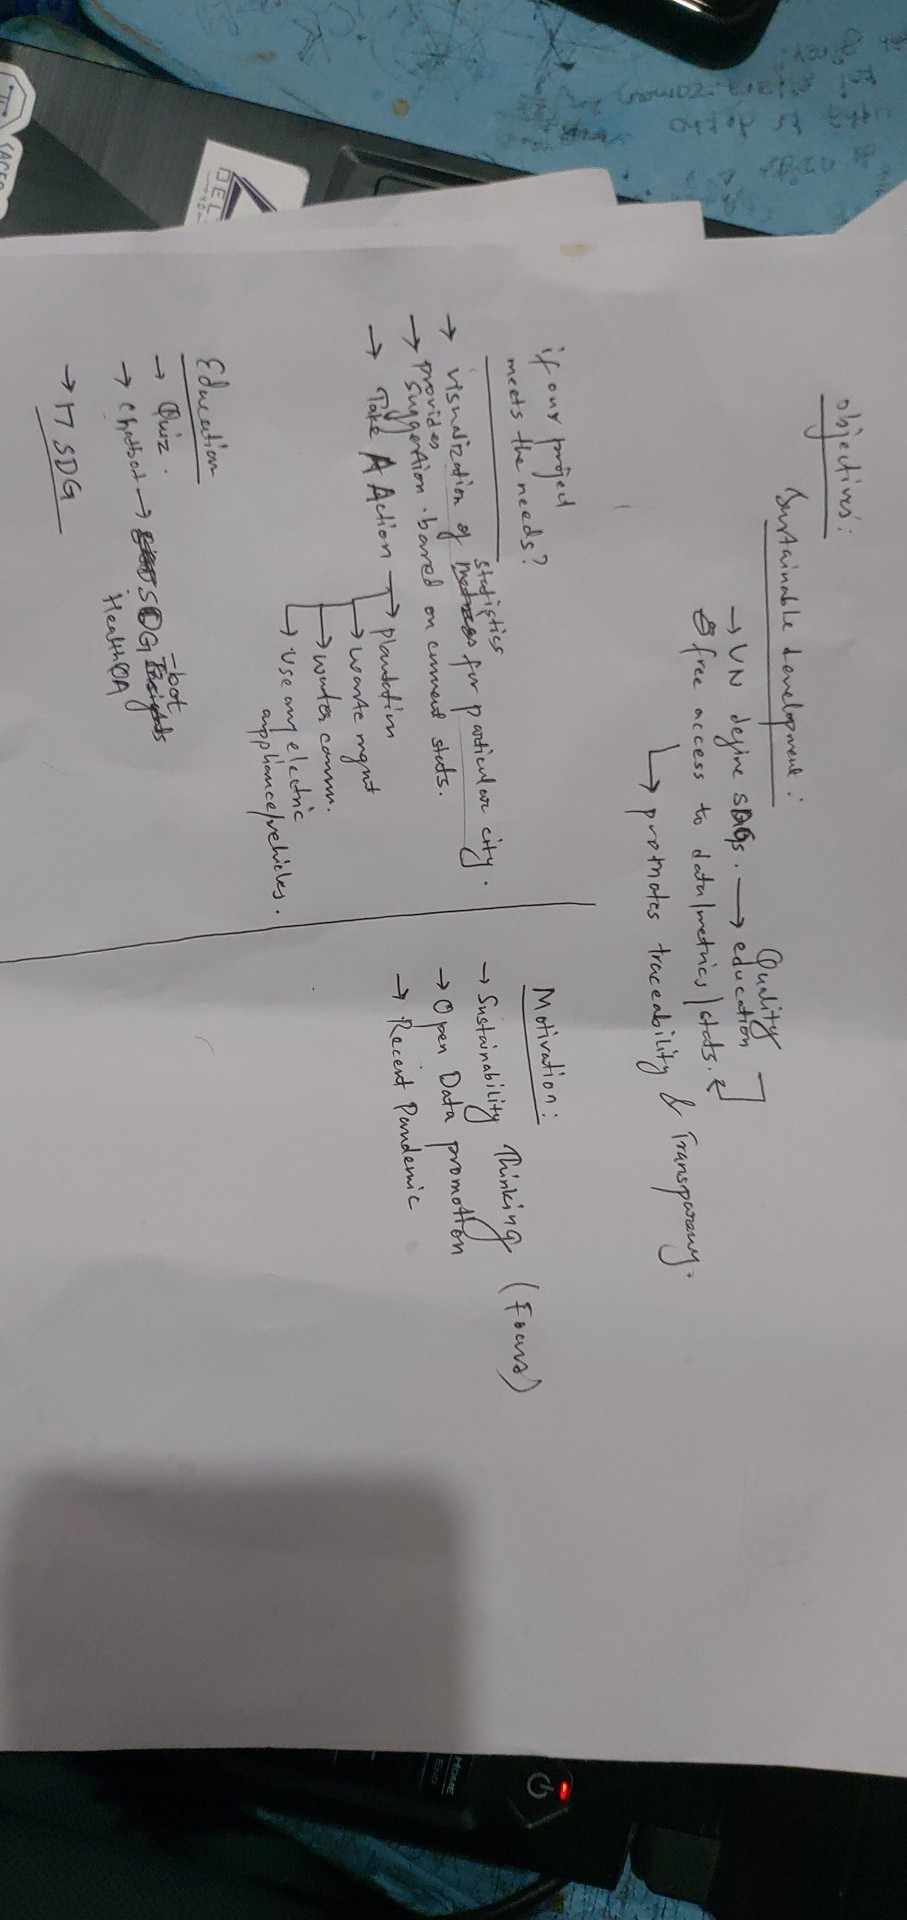 Objectives:
Sustainable development:
→ UN define SDGs. → Quality education
free access to data/metrics/stats.
↳ promotes traceability & Transparency.
if our project
meets the needs?
→ visualization of statistics for particular city.
→ provides suggestion based on current stats.
→ Take A Action → plantation
→ waste mgmt
→ water conn.
→ Use any electric
appliance/vehicles.
Education
→ Quiz.
→ Chatbot → SDG-bot
HealthQA
→ 17 SDG
Motivation:
→ Sustainability Thinking (Focus)
→ Open Data promotion
→ Recent Pandemic
HOME
End